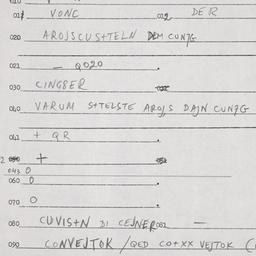 011 VONC 012 DER
020 AROJSCUS+TELN DEM CUNJG
021 — Q020
030 CINGBER
040 VARUM S+TELSTE AROJS DAJN CUNJG
041 + QR
2 +
043 0
060 0
070 0
080 CUVIS+N DI CEJNER 081 —
090 CONVEJTOK / QED CO+XX VEJTOK (